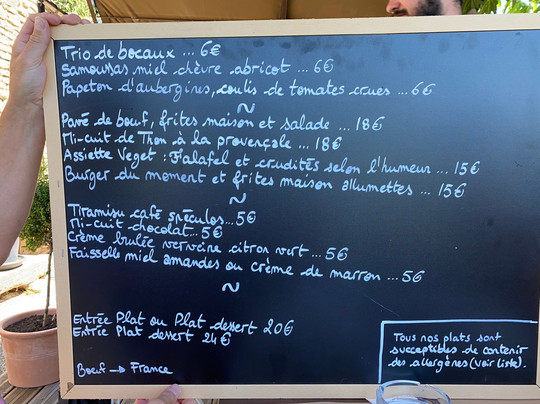 Trio de bocaux ... 6€
Samoussas miel chèvre abricot ... 6€
Papeton d'aubergines, coulis de tomates crues ... 6€
~
Pavé de bœuf, frites maison et salade ... 18€
Mi-cuit de Thon à la provençale ... 18€
Assiette Veget : Falafel et crudités selon l'humeur ... 15€
Burger du moment et frites maison allumettes ... 15€
~
Tiramisu café spéculos...5€
Mi-cuit chocolat...5€
Crème brulée verveine citron vert ... 5€
Faisselle miel amandes ou crème de marron ... 5€
~
Entrée Plat ou Plat dessert 20€
Entrée Plat dessert 24€
Bœuf → France
Tous nos plats sont
succeptibles de contenir
des allergènes (voir liste).